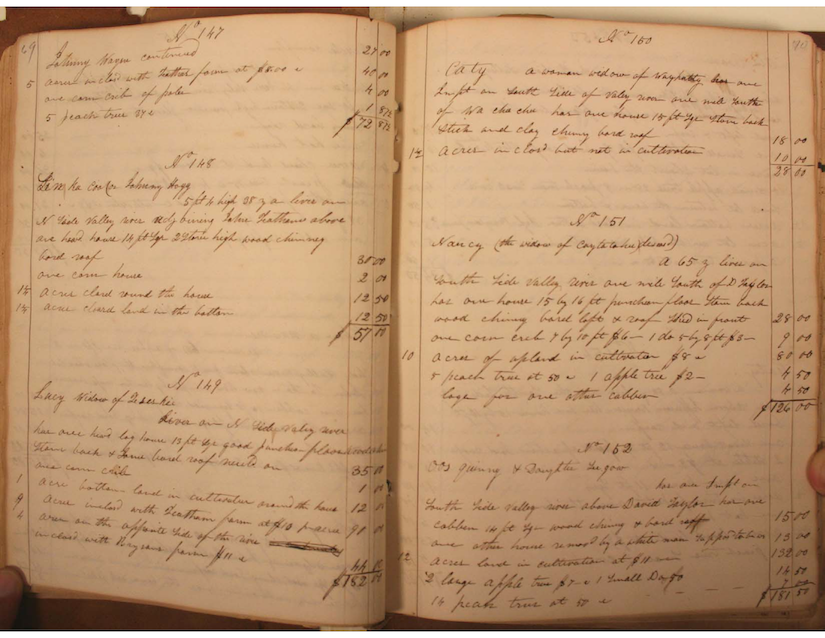 69
No 147
Johnny Wayne continued 27 00
5 acres inclosed with Feather farm at $8.00 e 40 00
one corn crib of poles 4 00
5 peach trees 1 87½
$72 87½
No 148
Johnny Hogg
5 ft 4 high 28 y a lives on
N Side Valley river adjoining John Feathers above
one head house 14 ft sqr 2 stories high wood chimney
bord roof 30 00
one corn house 2 00
1½ acre cleard round the house 12 50
1½ acre cleard land in the bottom 12 50
$57 00
No 149
Lucy Widow of
lives on N Side Valley river
has one head log house 13 ft sqr good puncheon floor wood
Stone back & bord roof 35 00
one corn crib 1 00
1 acre bottom land in cultivation around the house 12 00
9 acres inclosed with Feather farm at $10 pr acre 90 00
4 acres on the opposite Side of the river
inclosed with farm $11 e 44 00
$182 00
70
No 150
Caty A woman widow of has one
Impt on South Side of Valey river one mile South
of Wa cha cha has one house 18 ft sqr Stone back
Stick and clay chimny bord roof 18 00
1½ acres in closd but not in cultivation 10 00
28 00
No 151
Nancy (the widow of desesd)
A 65 y lives on
South Side Valley river one mile South of D Taylor
has one house 15 by 16 ft puncheon floor Stone back
wood chimny bord loft & roof Shed in front 28 00
one corn crib 7 by 10 ft $6 – 1 do 5 by 8 ft $3 – 9 00
10 acres of upland in cultivation $8 e 80 00
8 peach trees at 50 e 1 apple tree $2 – 4 50
logs for one other cabben 4 50
$126 00
No 152
& Daughter
has one Impt on
South Side Valley river above David Taylor has one
cabben 14 ft sqr wood chimny & bord roof 15 00
one other house removed by a white man 13 00
12 acres land in cultivation at $11 132 00
2 large apple trees $7 – e 1 Small Do 50 14 50
14 peach trees at 50 e 7 00
$181 50